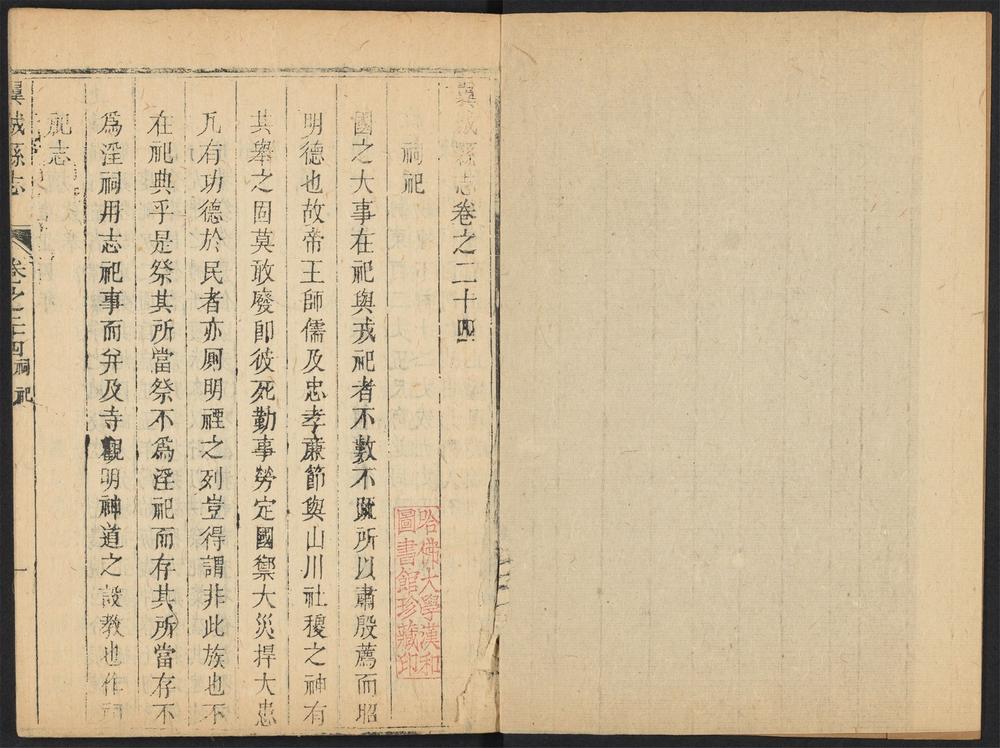 翼城縣志卷之二十四
祠祀
國之大事在祀與戎祀者不數不𭤨所以肅殷薦而昭
明德也故帝王師儒及忠孝廉節與山川社稷之神有
其舉之固莫敢廢即彼死勤事勞定國禦大災捍大患
凡有功德於民者亦厠明禋之列豈得謂非此族也不
在祀典乎是祭其所當祭不爲淫祀而存其所當存不
爲淫祠用志祀事而弁及寺觀明神道之設教也作祠
祀志
翼城縣志
卷之二十四祠祀
一
哈佛大學漢和
圖書館珍藏印